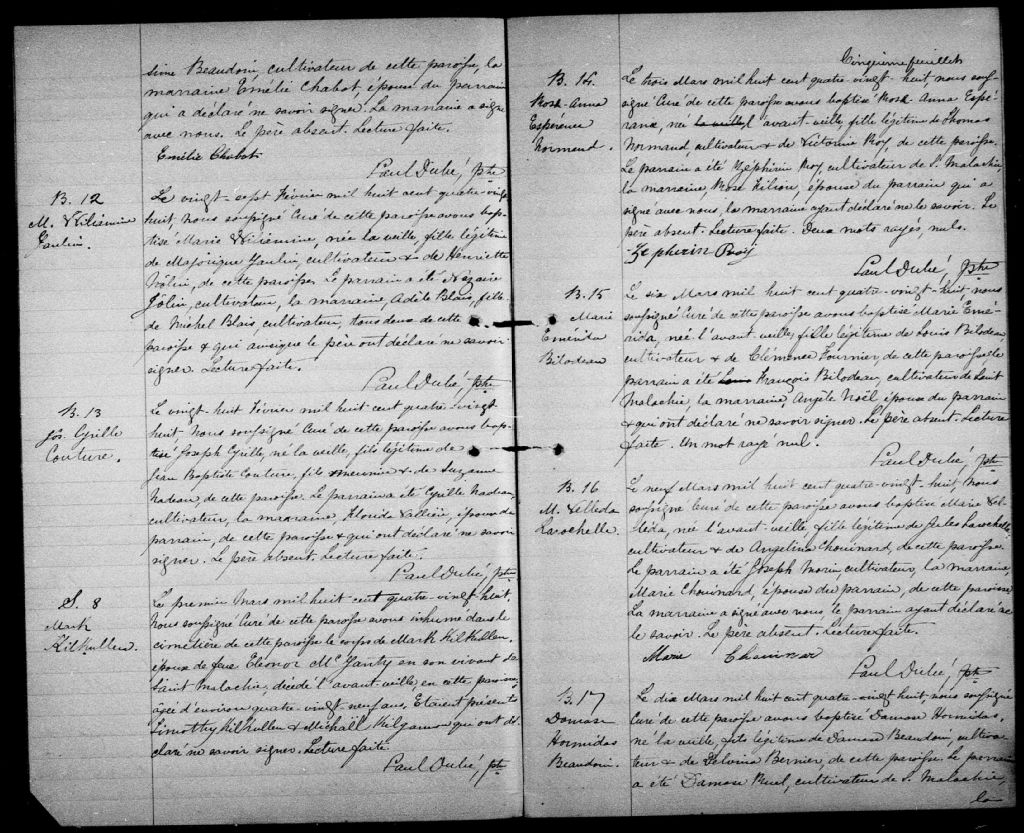 sime Beaudoin, cultivateur de cette paroisse, la
marraine Emélie Chabot, épouse du parrain
qui a déclaré ne savoir signer. La marraine a signé
avec nous. Le père absent. Lecture faite.
Emélie Chabot
Paul Dubé, Ptre
B. 12
M.
Gaulin.
Le vingt-sept Février mil huit cent quatre-vingt
huit, Nous soussigné Curé de cette paroisse avons bap-
tisé Marie née la veille, fille légitime
de Majorique Gaulin, cultivateur & de Henriette
de cette paroisse. Le parrain a été Nazaire
cultivateur, la marraine, Adèle Blais, fille
de Michel Blais, cultivateur, tous deux de cette
Paroisse & qui ainsi que le père ont déclaré ne savoir
signer. Lecture faite.
Paul Dubé, Ptre
B. 13
Jos. Cyrille
Couture.
Le vingt-huit Février mil huit cent quatre-vingt
huit, Nous soussigné Curé de cette paroisse avons bap-
tisé Joseph Cyrille, né la veille, fils légitime de
Jean Baptiste Couture, meunier & de Suzanne
Nadeau, de cette paroisse. Le parrain a été Cyrille Nadeau,
cultivateur, la marraine, Florida Vallière, épouse du
parrain, de cette paroisse & qui ont déclaré ne savoir
signer. Le père absent. Lecture faite.
Paul Dubé, Ptre
S. 8
Mark
Kilkullen.
Le premier Mars mil huit cent quatre-vingt huit,
Nous soussigné Curé de cette paroisse avons inhumé dans le
cimetière de cette paroisse le corps de Mark Kilkullen.
époux de feue Eléonor Mc Ganty en son vivant de
Saint Malachie, décédé l'avant-veille, en cette paroisse,
âgé d'environ quatre-vingt neuf ans. Etaient présents
Timothy Kilkullen & Michall Kilgannon qui ont dé-
claré ne savoir signer. Lecture faite.
Paul Dubé, Ptre
Cinquième feuillet
B. 14.
Rose-Anna
Espérence
Normand.
Le trois Mars mil huit cent quatre-vingt-huit, nous sous-
signé Curé de cette paroisse avons baptisé Rose Anna Espé-
rance, née la veille, l'avant-veille, fille légitime de Thomas
Normand, cultivateur & de Victorine Roy, de cette paroisse.
Le parrain a été Zéphirin Roy, cultivateur de S. Malachie,
la marraine, Rose Kilion, épouse du parrain qui a
signé avec nous, la marraine ayant déclaré ne le savoir. Le
père absent. Lecture faite. Deux mots rayés, nuls.
Zepherin Roy
Paul Dubé, Ptre
B. 15
Marie
Emérida
Bilodeau
Le six Mars mil huit cent quatre-vingt-huit, nous
soussigné Curé de cette paroisse avons baptisé Marie Emé-
rida, née l'avant-veille, fille légitime de Louis Bilodeau,
cultivateur & de Clémence Fournier, de cette paroisse le
parrain a été Louis François Bilodeau, cultivateur de Saint
Malachie, la marraine, Angèle Noël épouse du parrain
& qui ont déclaré ne savoir signer. Le père absent. Lecture
faite. Un mot rayé nul.
Paul Dubé, Ptre
B. 16
M. Velleda
Larochelle.
Le neuf Mars mil huit cent quatre-vingt-huit, Nous
soussigné Curé de cette paroisse avons baptisé Marie Vel-
léda, née l'avant-veille, fille légitime de Jules Larochelle
cultivateur & de Angelina Chouinard, de cette paroisse.
Le parrain a été Joseph Morin, cultivateur, la marraine,
Marie Chouinard, épouse du parrain, de cette paroisse
La marraine a signé avec nous le parrain ayant déclaré ne
le savoir. Le père absent. Lecture faite.
Marie Chouinar
Paul Dubé, Ptre
B. 17
Damase
Hormidas
Beaudoin.
Le dix Mars mil huit cent quatre-vingt huit, nous soussigné
Curé de cette paroisse avons baptisé Damase Hormidas,
né la veille, fils légitime de Damase Beaudoin, cultiva-
teur & de Delvina Bernier, de cette paroisse. Le parrain
a été Damase Ruel, cultivateur de S. Malachie,
la